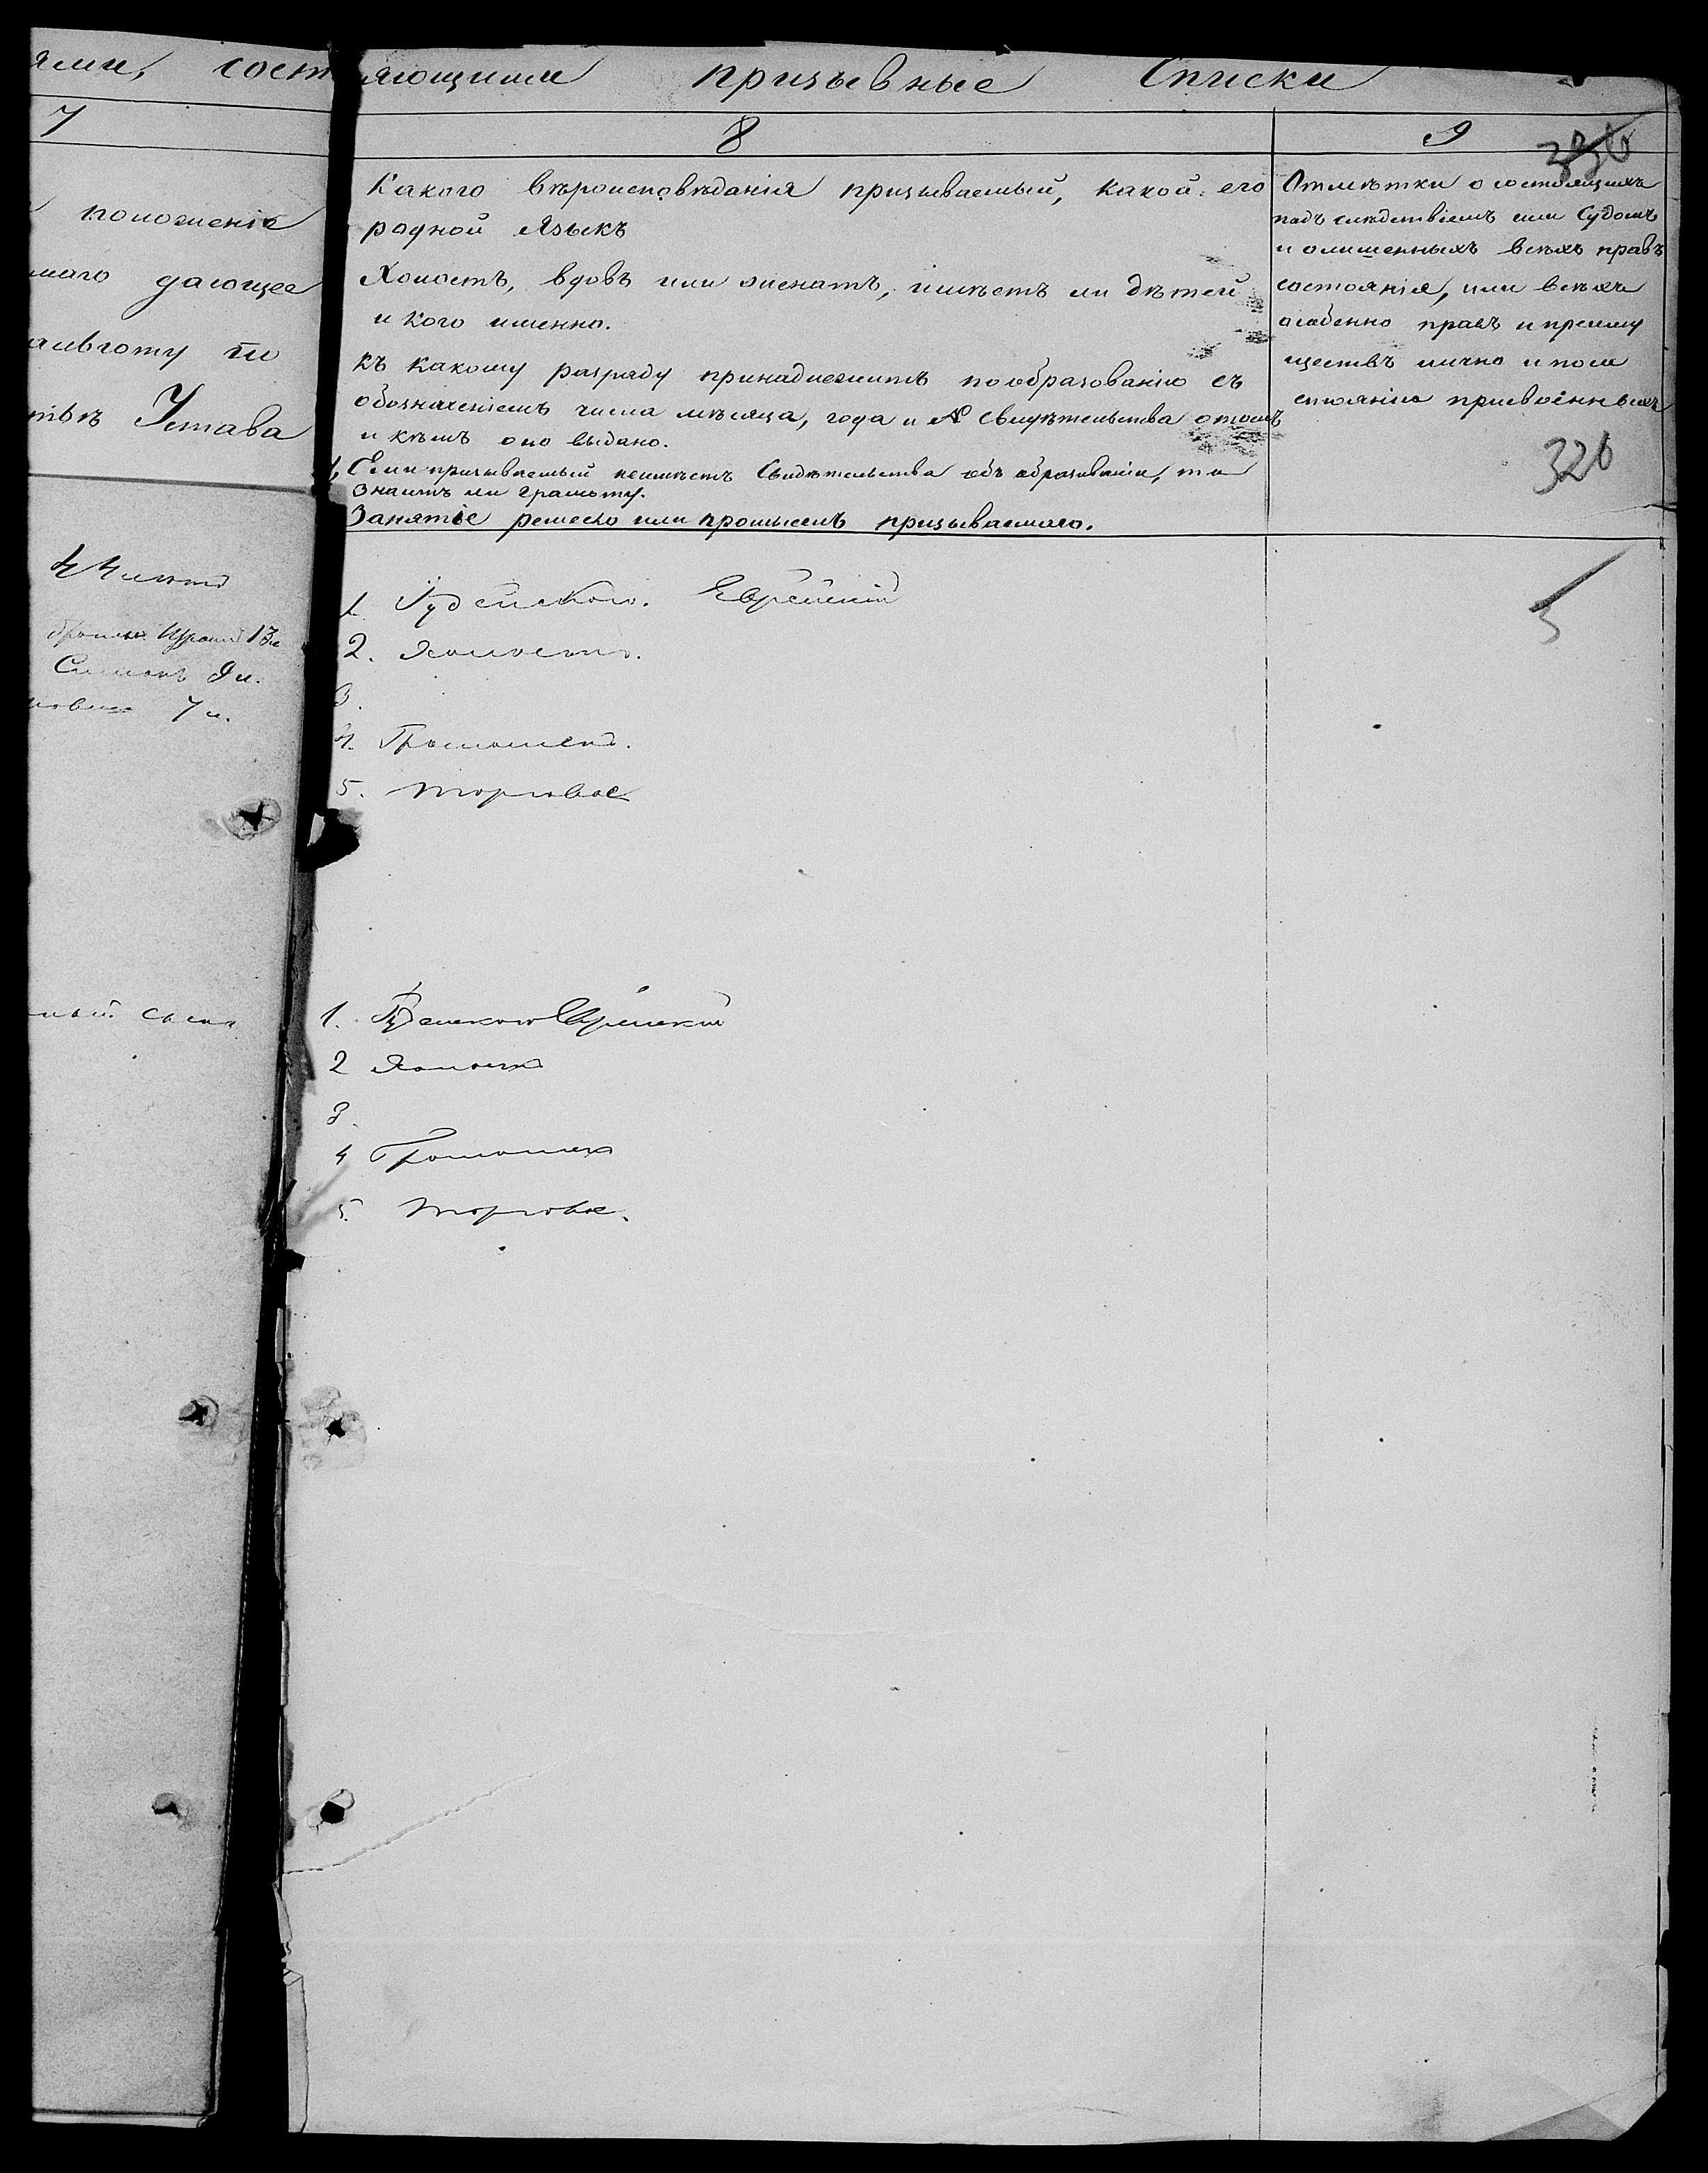 ями, сост яющими призывные Списки
7
8
9
330
положенiе
маго дающее
альготу по
Устава
Какого вѣроисповѣданiя призываемый, какой его
родной языкъ
Холостъ, вдовъ или женатъ, имѣетъ ли дѣтей
и кого именно.
къ какому разряду принадлежитъ по образованiю съ
обозначенiемъ числа мѣсяца, года и № свидѣтельства о томъ
и кѣмъ оно выдано.
Если призываемый неимѣетъ Свидѣтельства объ образованiи, то
знаетъ ли грамоту.
Занятiе ремесло или промыселъ призываемаго.
Отмѣтки о состоящихъ
подъ слѣдствiемъ или Судомъ
и о лишенныхъ всѣхъ правъ
состоянiя, или всѣхъ
особенно правъ и преиму
ществъ лично и по со
стоянiю присвоенныхъ
320
44
13 л
Симонъ 9 л.
7 л.
1. Iудейского. Еврейскiй
2. Холостъ.
3.
4. Грамотенъ.
5. торговое
5
ный сынъ
1. Iудейского Еврейскiй
2 Холостъ
3.
4 Грамотенъ
5. торговое.